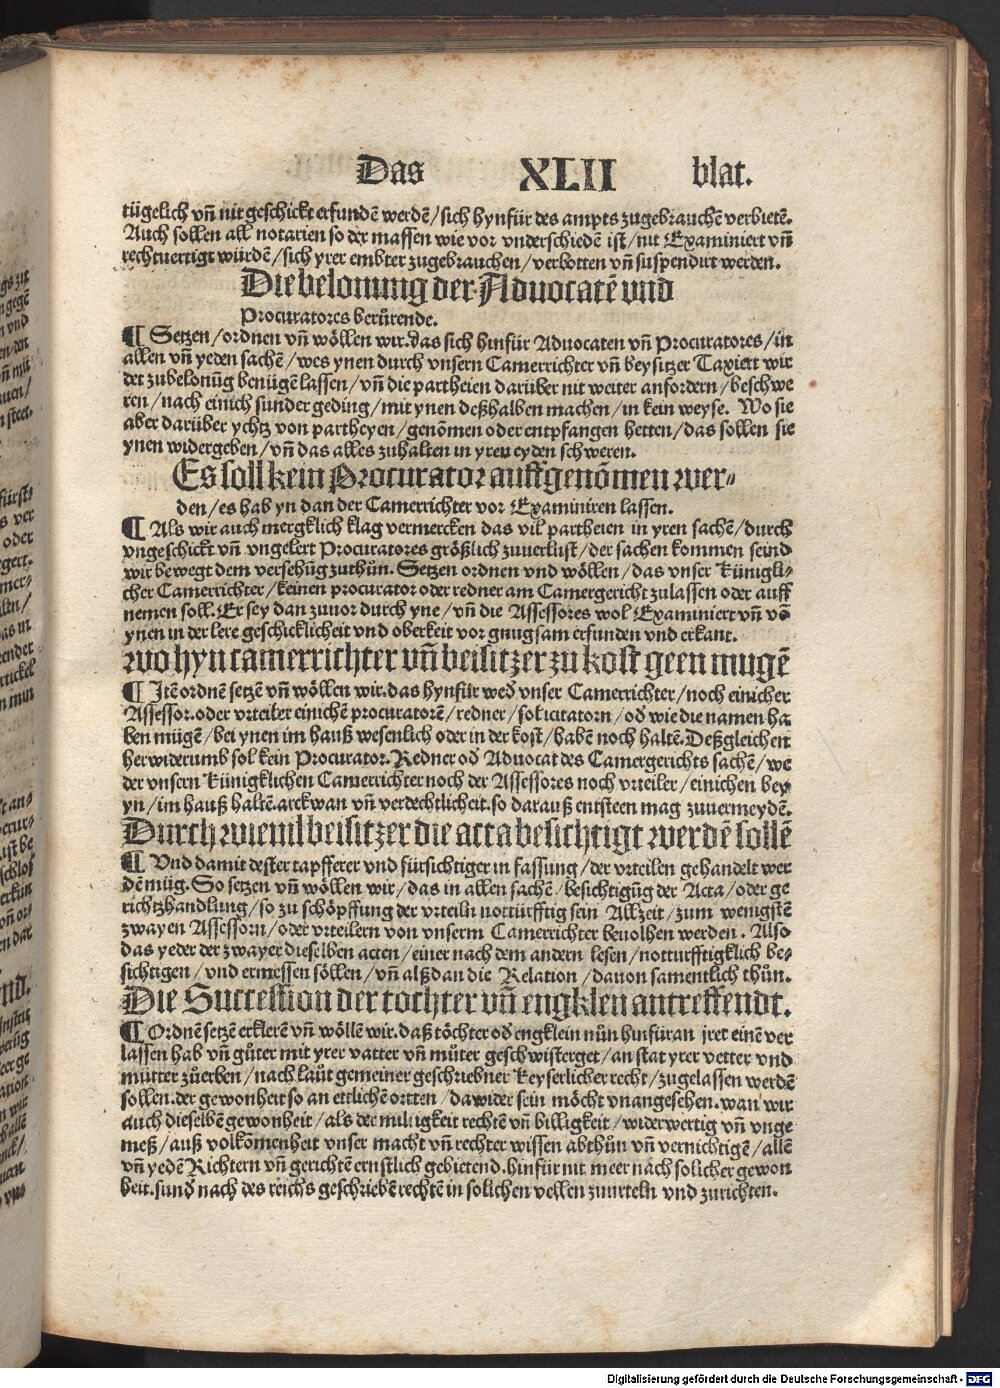 Das XLII blat.
tügelich vñ nit geschickt erfundē werdē/sich hynfür des ampts zugebrauchē verbietē.
Auch sollen all notarien so der massen wie vor vnderschiedē ist/nit Examiniert vñ
rechtuertigt würdē/sich yrer embter zugebrauchen/verbotten vñ suspendirt werden.
Die belonung der Aduocatē vnd
Procuratores berürende.
¶ Setzen/ordnen vñ wöllen wir.das sich hinfür Aduocaten vñ Procuratores/in
allen vñ yeden sachē/wes ynen durch vnsern Camerrichter vñ beysitzer Taxiert wir
det zubelonūg benügē lassen/vñ die partheien darüber nit weiter anfordern/beschwe
ren/nach einich sunder geding/mit ynen deßhalben machen/in kein weyse. Wo sie
aber darüber ychtz von partheyen/genōmen oder entpfangen hetten/das sollen sie
ynen widergeben/vñ das alles zuhalten in yren eyden schweren.
Es soll kein Procurator auffgenōmen wer-
den/es hab yn dan der Camerrichter vor Examiniren lassen.
¶ Als wir auch mergklich klag vermercken das vil partheien in yren sachē/durch
vngeschickt vñ vngelert Procuratores größlich zuuerlust/der sachen kommen seind
wir bewegt dem versehūg zuthůn. Setzen ordnen vnd wöllen/das vnser Künigli-
cher Camerrichter/keinen procurator oder redner am Camergericht zulassen oder auff
nemen soll. Er sey dan zuuor durch yne/vñ die Assessores wol Examiniert vñ vō
ynen in der lere geschicklicheit vnd oberkeit vor gnugsam erfunden vnd erkant.
wo hyn camerrichter vñ beisitzer zu kost geen mugē
¶ Itē ordnē setzē vñ wöllen wir.das hynfür wed̄ vnser Camerrichter/noch einicher
Assessor.oder vrteiler einichē procuratorē/redner/solicitatorn/od̄ wie die namen ha
ben mügen/bei ynen im hauß wesenlich oder in der kost/habē noch haltē. Deßgleichen
herwiderumb sol kein Procurator.Redner od̄ Aduocat des Camergerichts sachē/we
der vnsern Künigklichen Camerrichter noch der Assessores noch vrteiler/einichen bey
yn/im hauß haltē.arckwan vñ verdechtlicheit.so darauß entsteen mag zuuermeydē.
Durch wieuil beisitzer die acta besichtigt werdē sollē
¶ Vnd damit dester tapfferer vnd fürsichtiger in fassung/der vrteilen gehandelt wer
dē müg. So setzen vñ wöllen wir/das in allen sachē/besichtigūg der Acta/oder ge
richtzhandlung/so zu schöpffung der vrteiln nottürfftig sein Allzeit/zum wenigstē
zwayen Assessorn/oder vrteilern von vnserm Camerrichter beuolhen werden. Also
das yeder der zwayer dieselben acten/einer nach dem andern lesen/notturfftigklich be-
sichtigen/vnd ermessen söllen/vñ alßdan die Relation/dauon samentlich thůn.
Die Succession der tochter vñ engklen antreffendt.
¶ Ordnē setzē erklerē vñ wöllē wir.daß töchter od̄ engklein nůn hinfüran jret einē ver
lassen hab vñ gůter mit yrer vatter vñ můter geschwisterget/an stat yrer vetter vnd
můtter zůerben/nach laůt gemeiner geschriebner Keyserlicher recht/zugelassen werdē
sollen.der gewonheit so an ettlichē ortten/dawider sein möcht vnangesehen.wan wir
auch dieselbē gewonheit/als der miltigkeit rechtē vñ billigkeit/widerwertig vñ vnge
meß/auß volkōmenheit vnser macht vñ rechter wissen abthůn vñ vernichtigē/allē
vñ yedē Richtern vñ gerichtē ernstlich gebietend.hinfür nit meer nach solicher gewon
heit.sund̄ nach des reichs geschriebē rechtē in solichen vellen zuurteln vnd zurichten.
Digitalisierung gefördert durch die Deutsche Forschungsgemeinschaft - DFG